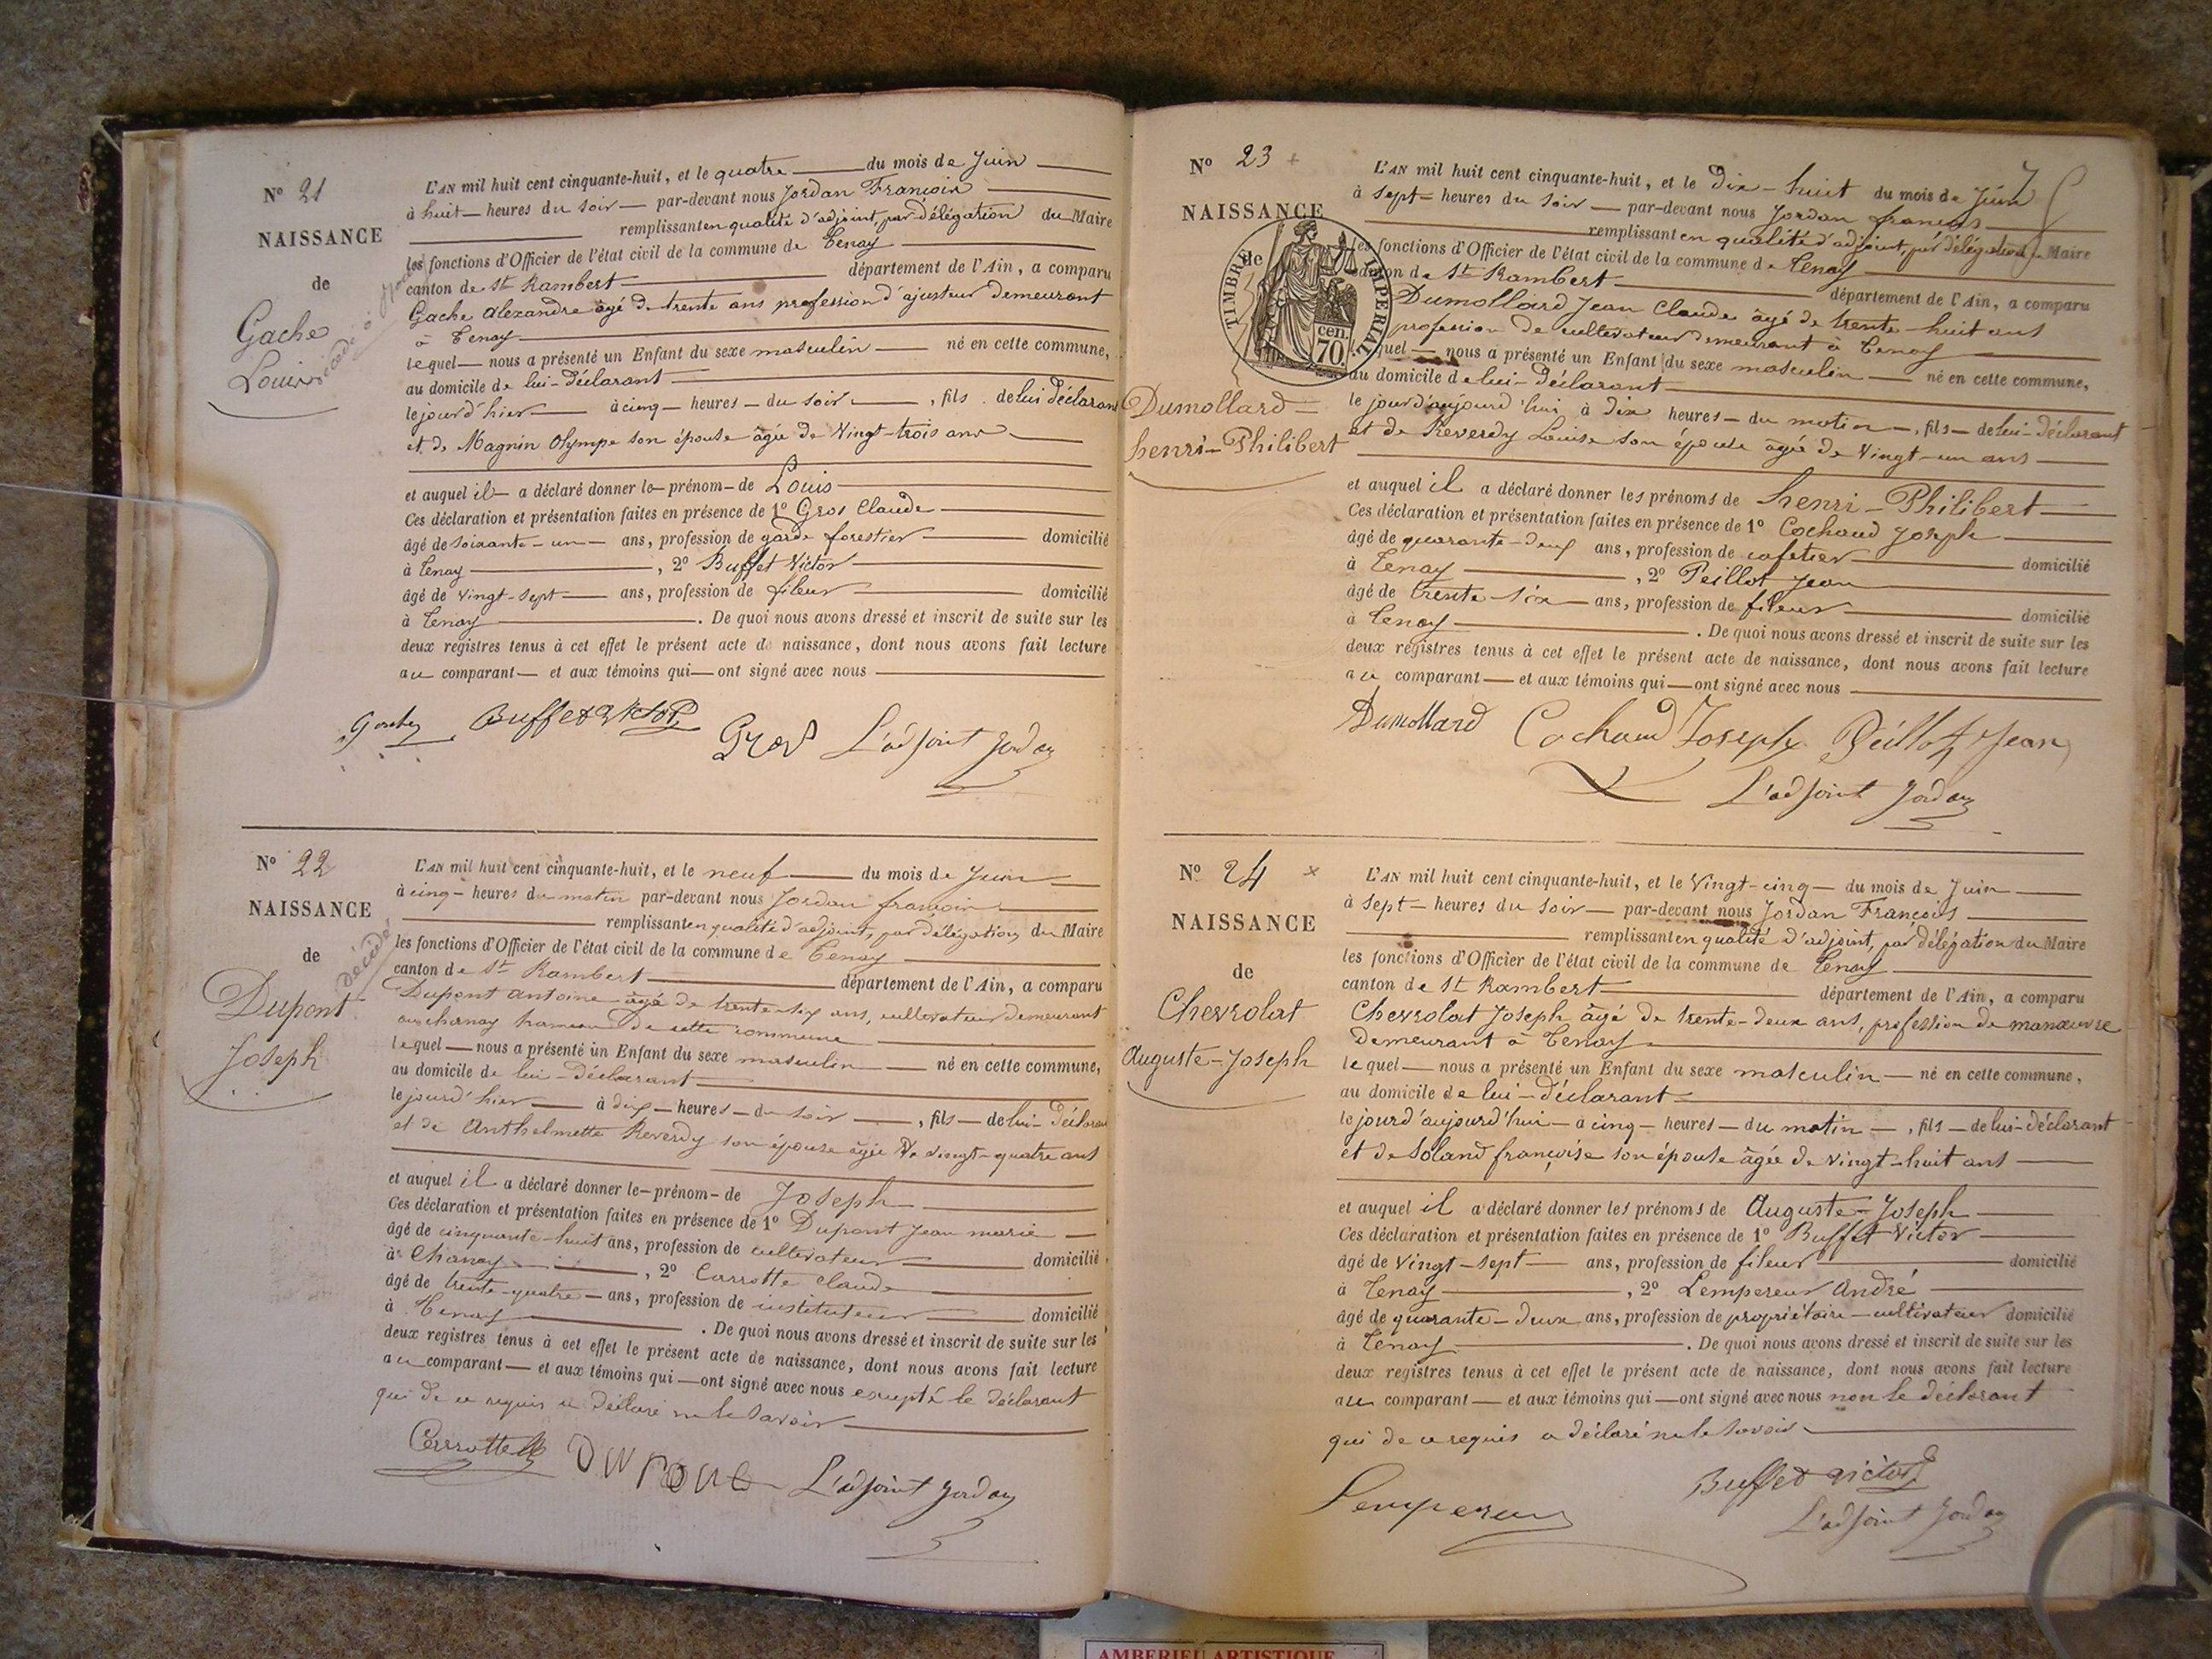 N° 21
NAISSANCE
de
Gache
Louis
L'AN mil huit cent cinquante-huit, et le quatre du mois de Juin
à huit heures du soir par-devant nous Jordan François
remplissant en qualité d'adjoint, par délégation du Maire
les fonctions d'Officier de l'état civil de la commune de Tenay
canton de St Rambert département de l'Ain, a comparu
Gache Alexandre âgé de trente ans profession d'ajusteur demeurant
à Tenay
lequel nous a présenté un Enfant du sexe masculin né en cette commune,
au domicile de lui-déclarant
le jour d'hier à cinq heures du soir, fils de lui déclarant
et de Magnin Olympe son épouse âgée de Vingt-trois ans
et auquel il a déclaré donner le prénom de Louis
Ces déclaration et présentation faites en présence de 1° Gros Claude
âgé de soixante-un ans, profession de garde forestier domicilié
à Tenay, 2° Buffet Victor
âgé de vingt-sept ans, profession de fileur domicilié
à Tenay. De quoi nous avons dressé et inscrit de suite sur les
deux registres tenus à cet effet le présent acte de naissance, dont nous avons fait lecture
au comparant et aux témoins qui ont signé avec nous
Buffet Victor Gros L'adjoint Jordan
N° 22
NAISSANCE
de
décédé
Dupont
Joseph
L'AN mil huit cent cinquante-huit, et le neuf du mois de Juin
à cinq heures du matin par-devant nous Jordan françois
remplissant en qualité d'adjoint, par délégation du Maire
les fonctions d'Officier de l'état civil de la commune de Tenay
canton de St Rambert département de l'Ain, a comparu
Dupont antoine âgé de trente-six ans, cultivateur demeurant
hameau de cette commune
lequel nous a présenté un Enfant du sexe masculin né en cette commune,
au domicile de lui-déclarant
le jour d'hier à dix heures du soir, fils de lui-déclarant
et de Anthelmette Reverdy son épouse âgée de vingt-quatre ans
et auquel il a déclaré donner le prénom de Joseph
Ces déclaration et présentation faites en présence de 1° Dupont Jean marie
âgé de cinquante-huit ans, profession de cultivateur domicilié
à Chanay, 2° Carrotte Claude
âgé de trente-quatre ans, profession de instituteur domicilié
à Tenay. De quoi nous avons dressé et inscrit de suite sur les
deux registres tenus à cet effet le présent acte de naissance, dont nous avons fait lecture
au comparant et aux témoins qui ont signé avec nous excepté le déclarant
qui de ce requis a déclaré ne le savoir
L'adjoint Jordan
N° 23
NAISSANCE
de
TIMBRE IMPERIAL
cen. 70
Dumollard
henri-Philibert
L'AN mil huit cent cinquante-huit, et le Dix-huit du mois de Juin
à sept heures du soir par-devant nous Jordan françois
remplissant en qualité d'adjoint, par délégation du Maire
les fonctions d'Officier de l'état civil de la commune de Tenay
canton de St Rambert département de l'Ain, a comparu
Dumollard Jean Claude âgé de trente-huit ans
profession de cultivateur demeurant à Tenay
lequel nous a présenté un Enfant du sexe masculin né en cette commune,
au domicile de lui-déclarant
le jour d'aujourd'hui à dix heures du matin, fils de lui-déclarant
et de Reverdy Louise son épouse âgée de Vingt-un ans
et auquel il a déclaré donner les prénoms de henri-Philibert
Ces déclaration et présentation faites en présence de 1° Cochaud Joseph
âgé de quarante-deux ans, profession de cafetier domicilié
à Tenay, 2° Peillot Jean
âgé de trente-six ans, profession de fileur domicilié
à Tenay. De quoi nous avons dressé et inscrit de suite sur les
deux registres tenus à cet effet le présent acte de naissance, dont nous avons fait lecture
au comparant et aux témoins qui ont signé avec nous
Dumollard Cochaud Joseph Peillot Jean
L'adjoint Jordan
N° 24
NAISSANCE
de
Chevrolat
Auguste-Joseph
L'AN mil huit cent cinquante-huit, et le Vingt-cinq du mois de Juin
à sept heures du soir par-devant nous Jordan François
remplissant en qualité d'adjoint, par délégation du Maire
les fonctions d'Officier de l'état civil de la commune de Tenay
canton de St Rambert département de l'Ain, a comparu
Chevrolat Joseph âgé de trente-deux ans, profession de manœuvre
demeurant à Tenay
lequel nous a présenté un Enfant du sexe masculin né en cette commune,
au domicile de lui-déclarant
le jour d'aujourd'hui à cinq heures du matin, fils de lui-déclarant
et de Soland françoise son épouse âgée de vingt-huit ans
et auquel il a déclaré donner les prénoms de Auguste-Joseph
Ces déclaration et présentation faites en présence de 1° Buffet Victor
âgé de Vingt-sept ans, profession de fileur domicilié
à Tenay, 2° Lempereur André
âgé de quarante-deux ans, profession de propriétaire-cultivateur domicilié
à Tenay. De quoi nous avons dressé et inscrit de suite sur les
deux registres tenus à cet effet le présent acte de naissance, dont nous avons fait lecture
au comparant et aux témoins qui ont signé avec nous non le déclarant
qui de ce requis a déclaré ne le savoir
Lempereur Buffet victor
L'adjoint Jordan
AMBERIEU ARTISTIQUE